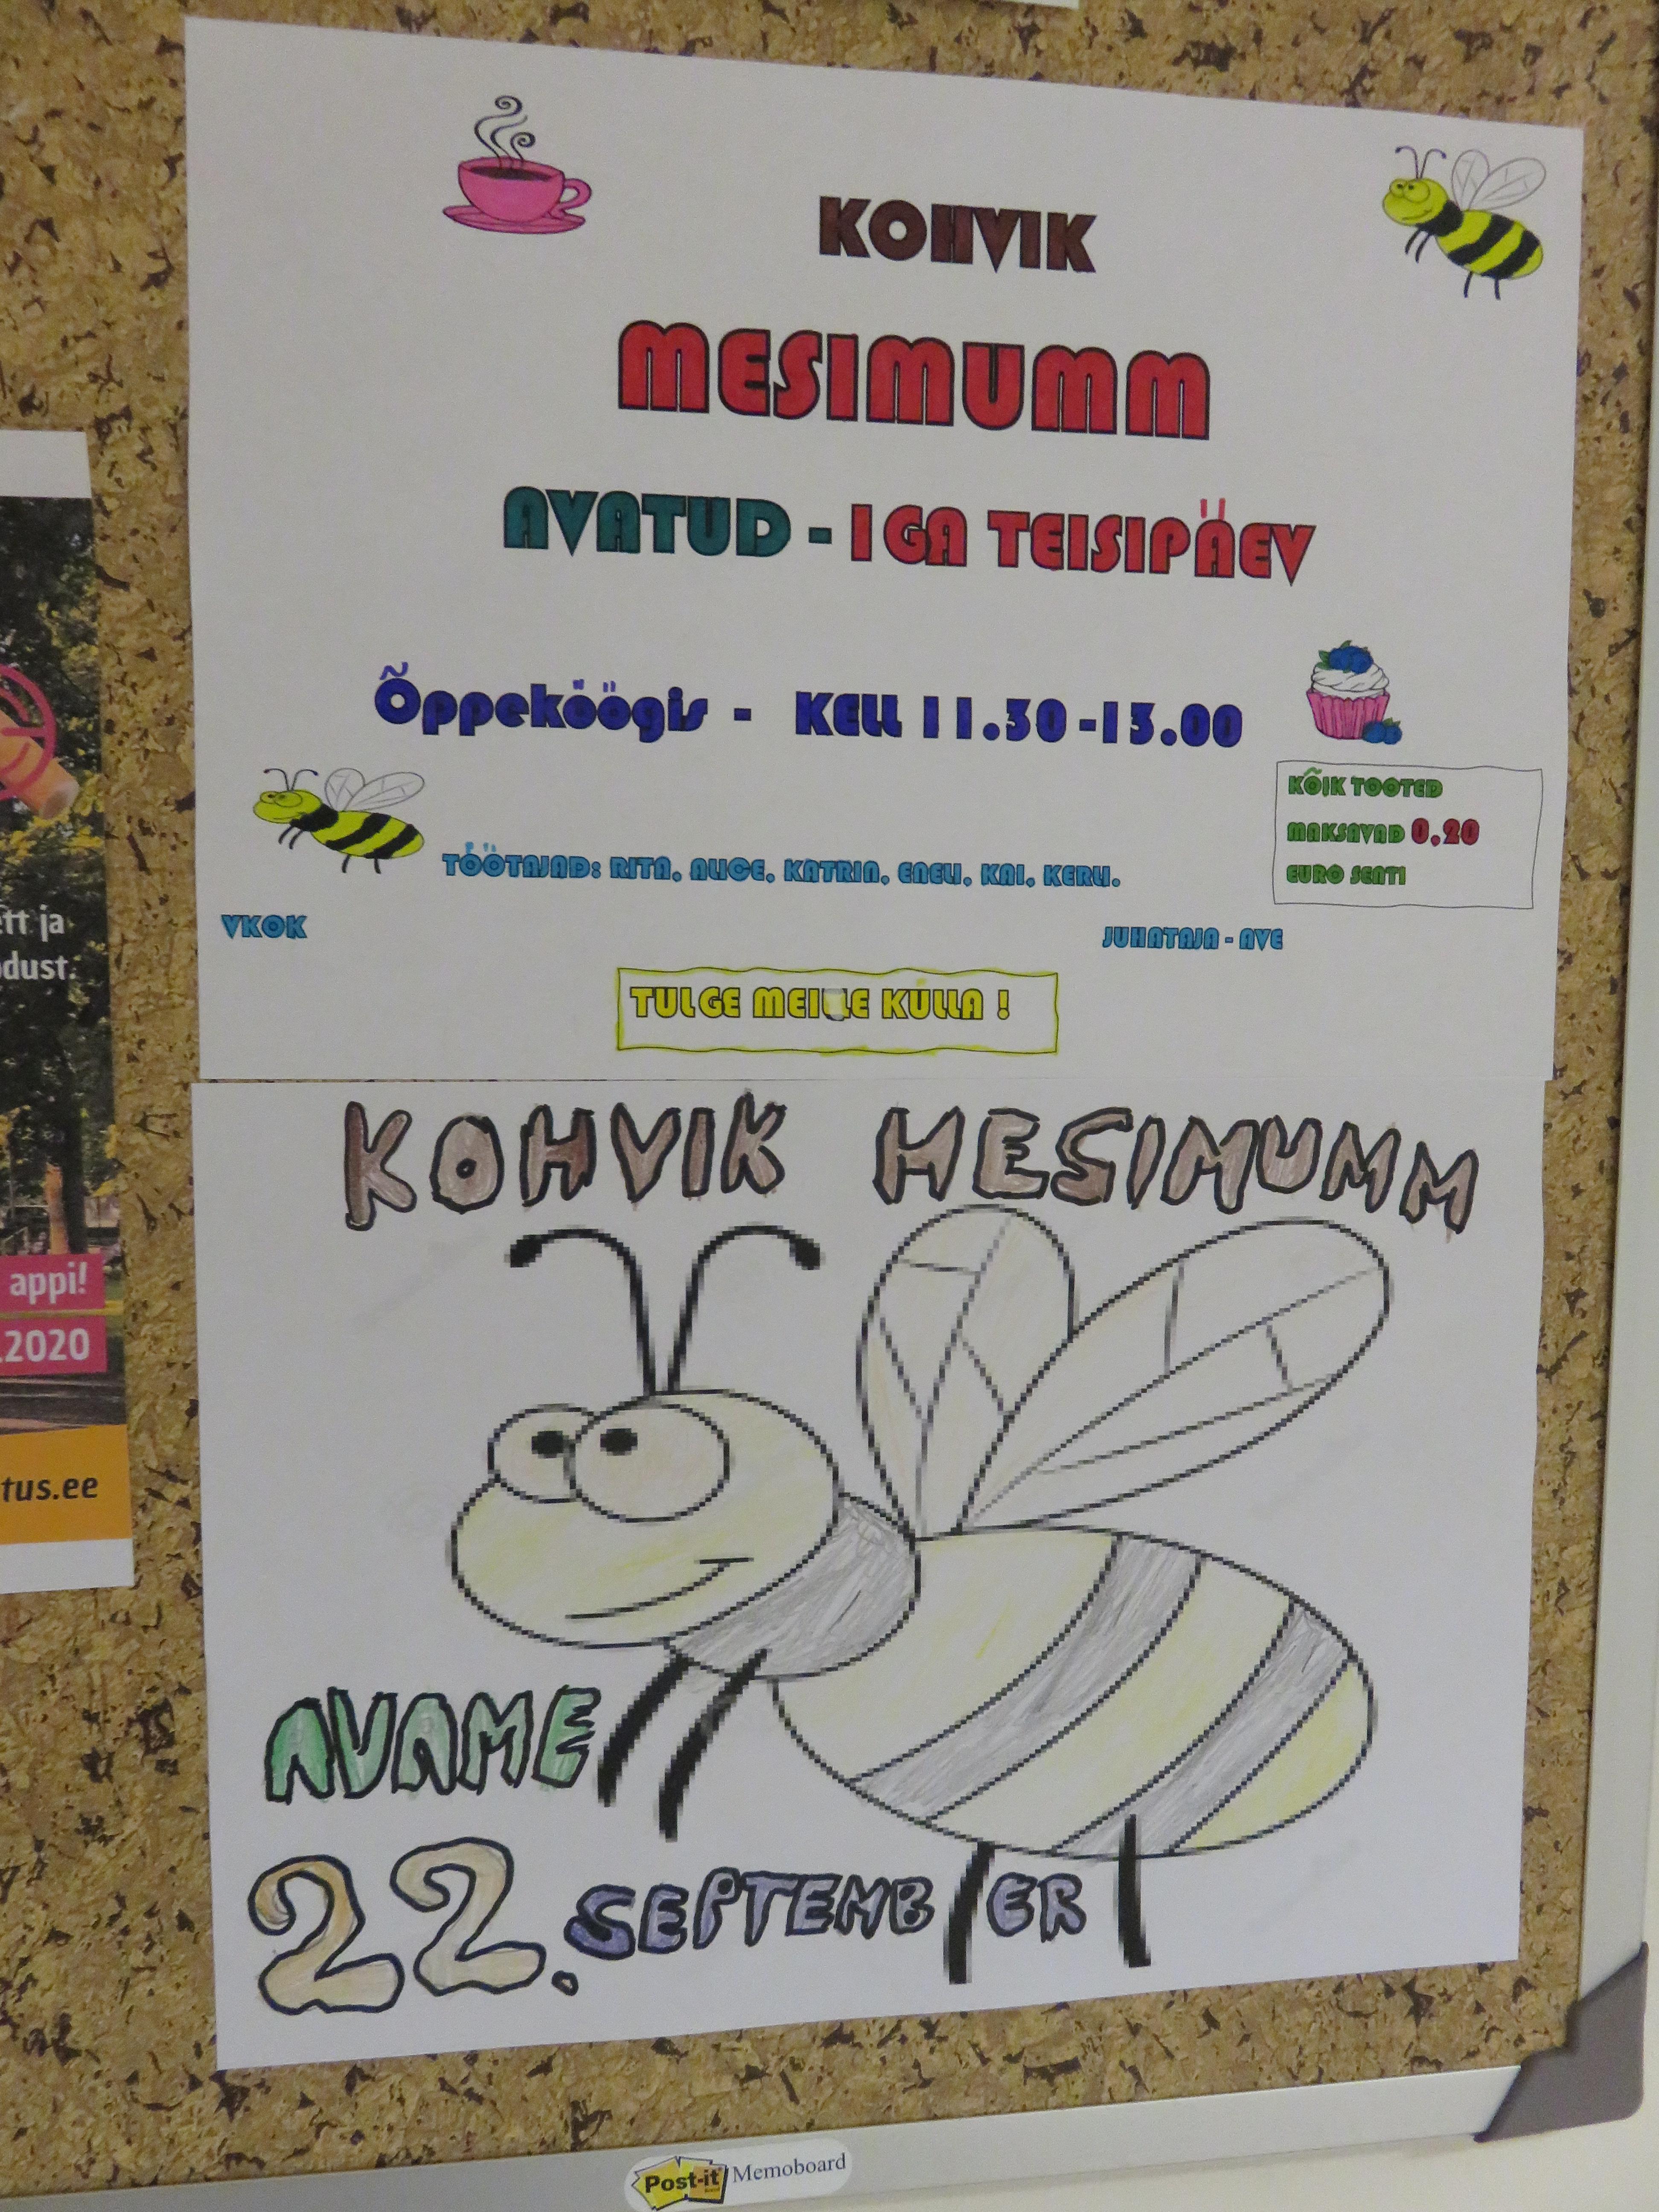 KOHVIK
MESIMUMM
AVATUD - IGA TEISIPÄEV
Õppeköögis - KELL 11.30-13.00
KÕIK TOOTED
MAKSAVAD 0,20
EURO SENTI
TÖÖTAJAD: RITA, ALICE, KATRIN, ENELI, KAI, KERLI.
VKOK
JUHATAJA - AVE
TULGE MEILLE KÜLLA !
KOHVIK MESIMUMM
AVAME
22. SEPTEMBER
ett ja
odust.
appi!
.2020
tus.ee
Post-it Memoboard